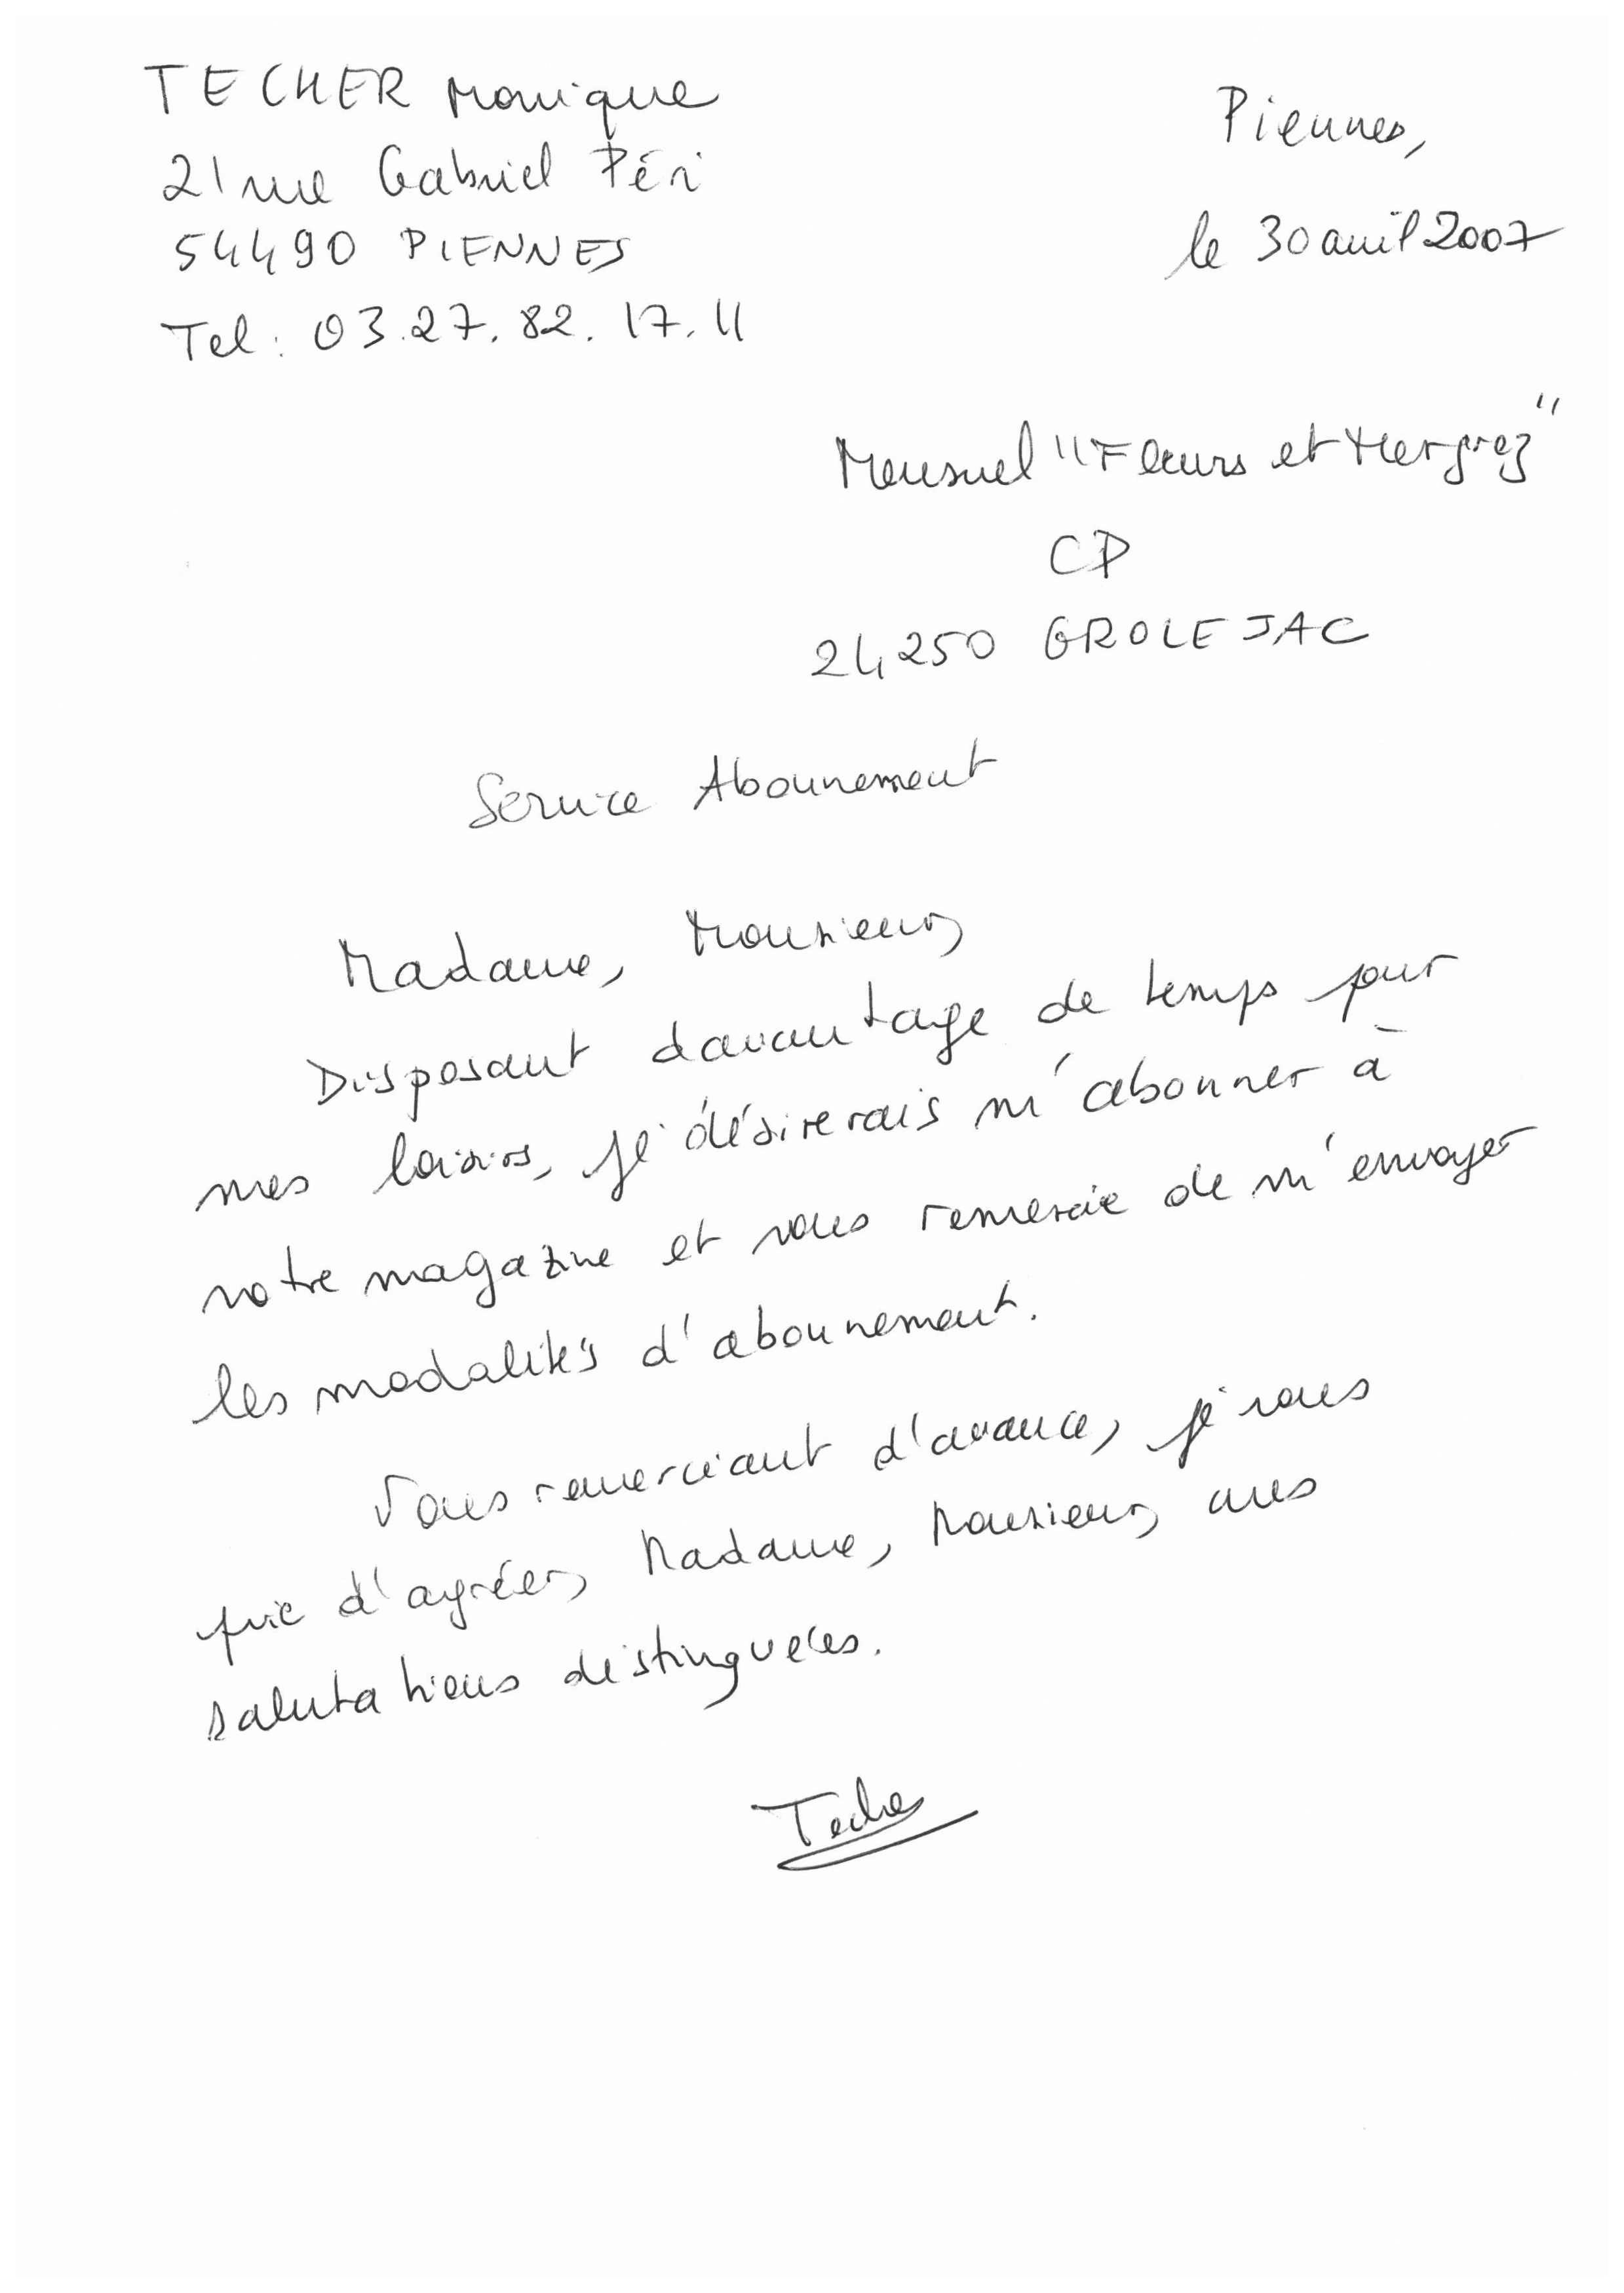 TECHER Monique
21 rue Gabriel Péri
54490 PIENNES
Tel : 03.27.82.17.11
Piennes,
le 30 avril 2007
Mensuel "Fleurs et Merguez"
CP
24250 GROLEJAC
Service Abonnement
Madame, Monsieur,
Disposant davantage de temps pour
mes loisirs, je désirerais m'abonner à
notre magazine et vous remercie de m'envoyer
les modalités d'abonnement.
Vous remerciant d'avance, je vous
prie d'agréer, Madame, Monsieur, mes
salutations distinguées.
Techer